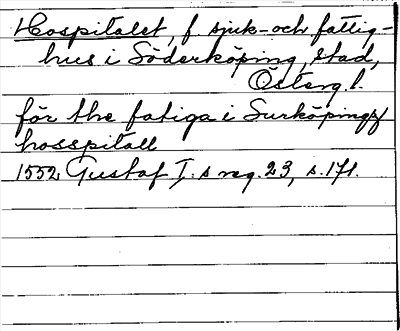 Hospitalet, f sjuk- och fattig-
hus i Söderköping, stad,
Österg. l.
för the fatiga i Surköpings
hosspitall
1552 Gustaf I. s reg. 23, s. 171.